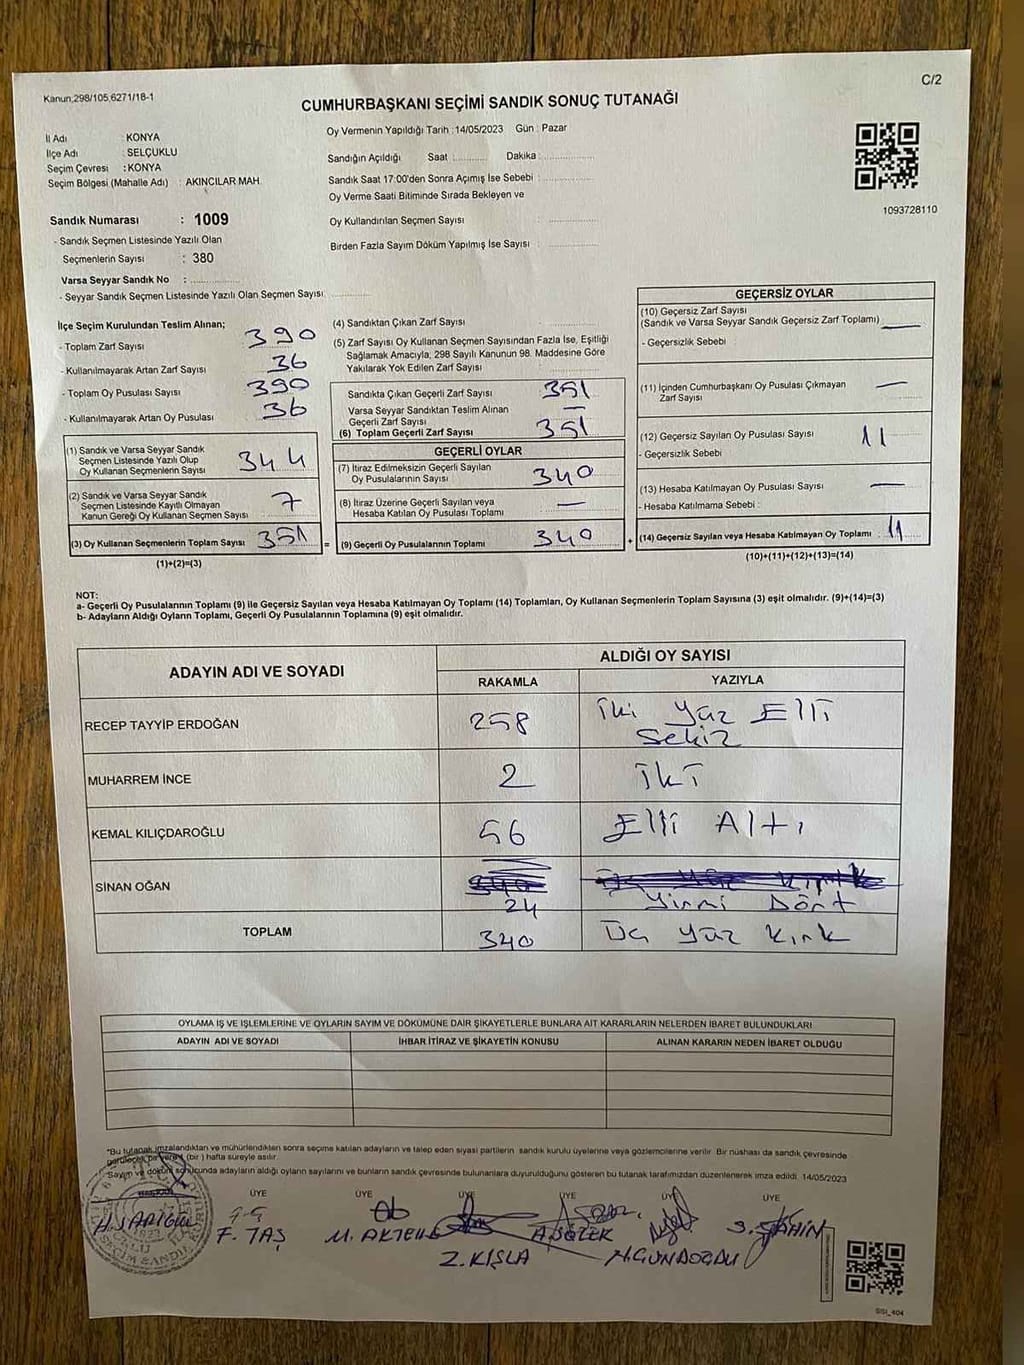 C/2
Kanun,298/105,6271/18-1
CUMHURBAŞKANI SEÇİMİ SANDIK SONUÇ TUTANAĞI
İl Adı : KONYA
İlçe Adı : SELÇUKLU
Seçim Çevresi : KONYA
Seçim Bölgesi (Mahalle Adı) : AKINCILAR MAH.
Oy Vermenin Yapıldığı Tarih : 14/05/2023 Gün : Pazar
Sandığın Açıldığı Saat Dakika :
Sandık Saat 17:00'den Sonra Açımış İse Sebebi :
Oy Verme Saati Bitiminde Sırada Bekleyen ve
Oy Kullandırılan Seçmen Sayısı :
Birden Fazla Sayım Döküm Yapılmış İse Sayısı :
1093728110
Sandık Numarası : 1009
- Sandık Seçmen Listesinde Yazılı Olan
Seçmenlerin Sayısı : 380
Varsa Seyyar Sandık No :
- Seyyar Sandık Seçmen Listesinde Yazılı Olan Seçmen Sayısı:
İlçe Seçim Kurulundan Teslim Alınan;
- Toplam Zarf Sayısı 390
- Kullanılmayarak Artan Zarf Sayısı 36
- Toplam Oy Pusulası Sayısı 390
- Kullanılmayarak Artan Oy Pusulası 36
(1) Sandık ve Varsa Seyyar Sandık
Seçmen Listesinde Yazılı Olup
Oy Kullanan Seçmenlerin Sayısı 344
(2) Sandık ve Varsa Seyyar Sandık
Seçmen Listesinde Kayıtlı Olmayan
Kanun Gereği Oy Kullanan Seçmen Sayısı 7
(3) Oy Kullanan Seçmenlerin Toplam Sayısı 351
(1)+(2)=(3)
(4) Sandıktan Çıkan Zarf Sayısı :
(5) Zarf Sayısı Oy Kullanan Seçmen Sayısından Fazla İse, Eşitliği
Sağlamak Amacıyla, 298 Sayılı Kanunun 98. Maddesine Göre
Yakılarak Yok Edilen Zarf Sayısı :
Sandıkta Çıkan Geçerli Zarf Sayısı 351
Varsa Seyyar Sandıktan Teslim Alınan
Geçerli Zarf Sayısı : —
(6) Toplam Geçerli Zarf Sayısı 351
GEÇERLİ OYLAR
(7) İtiraz Edilmeksizin Geçerli Sayılan
Oy Pusulalarının Sayısı : 340
(8) İtiraz Üzerine Geçerli Sayılan veya
Hesaba Katılan Oy Pusulası Toplamı : —
= (9) Geçerli Oy Pusulalarının Toplamı 340
GEÇERSİZ OYLAR
(10) Geçersiz Zarf Sayısı
(Sandık ve Varsa Seyyar Sandık Geçersiz Zarf Toplamı) : —
- Geçersizlik Sebebi :
(11) İçinden Cumhurbaşkanı Oy Pusulası Çıkmayan
Zarf Sayısı : —
(12) Geçersiz Sayılan Oy Pusulası Sayısı : 11
- Geçersizlik Sebebi :
(13) Hesaba Katılmayan Oy Pusulası Sayısı : —
- Hesaba Katılmama Sebebi :
+ (14) Geçersiz Sayılan veya Hesaba Katılmayan Oy Toplamı : 11
(10)+(11)+(12)+(13)=(14)
NOT:
a- Geçerli Oy Pusulalarının Toplamı (9) ile Geçersiz Sayılan veya Hesaba Katılmayan Oy Toplamı (14) Toplamları, Oy Kullanan Seçmenlerin Toplam Sayısına (3) eşit olmalıdır. (9)+(14)=(3)
b- Adayların Aldığı Oyların Toplamı, Geçerli Oy Pusulalarının Toplamına (9) eşit olmalıdır.
ADAYIN ADI VE SOYADI
ALDIĞI OY SAYISI
RAKAMLA YAZIYLA
RECEP TAYYİP ERDOĞAN 258 İki Yüz Elli
Sekiz
MUHARREM İNCE 2 İki
KEMAL KILIÇDAROĞLU 56 Elli Altı
SİNAN OĞAN 24 Yirmi Dört
TOPLAM 340 Üç Yüz Kırk
OYLAMA İŞ VE İŞLEMLERİNE VE OYLARIN SAYIM VE DÖKÜMÜNE DAİR ŞİKAYETLERLE BUNLARA AİT KARARLARIN NELERDEN İBARET BULUNDUKLARI
ADAYIN ADI VE SOYADI İHBAR İTİRAZ VE ŞİKAYETİN KONUSU ALINAN KARARIN NEDEN İBARET OLDUĞU
*Bu tutanak imzalandıktan ve mühürlendikten sonra seçime katılan adayların ve talep eden siyasi partilerin sandık kurulu üyelerine veya gözlemcilerine verilir. Bir nüshası da sandık çevresinde
görülecek bir yere (bir) hafta süreyle asılır.
Sayım ve döküm sonucunda adayların aldığı oyların sayılarını ve bunların sandık çevresinde bulunanlara duyurulduğunu gösteren bu tutanak tarafımızdan düzenlenerek imza edildi. 14/05/2023
ÜYE ÜYE ÜYE ÜYE ÜYE ÜYE
H. SARIGÜL F. TAŞ Z. KIŞLA A. SÖZEK H. GÜNDOĞDU S. ŞAHİN